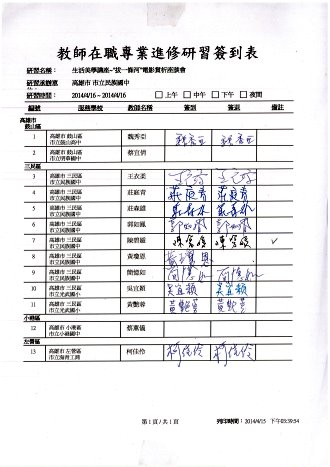 教師在職專業進修研習簽到表
研習名稱： 生活美學講座-"拔一條河"電影賞析座談會
研習承辦單位： 高雄市 市立民族國中
研習時間： 2014/4/16 ~ 2014/4/16 □上午 □中午 □下午 □夜間
編號 服務學校 教師名稱 簽到 簽退 備註
高雄市
鼓山區
1 高雄市 鼓山區 市立鼓山高中 魏秀亞 魏秀亞 魏秀亞
2 高雄市 鼓山區 市立明華國中 蔡宜倩
三民區
3 高雄市 三民區 市立民族國中 王衣柔
4 高雄市 三民區 市立民族國中 莊庭青 莊庭青 莊庭青
5 高雄市 三民區 市立民族國中
6 高雄市 三民區 市立民族國中 郭如鳳 郭如鳳 郭如鳳
7 高雄市 三民區 市立民族國中 ✓
8 高雄市 三民區 市立民族國中 黃瓊恩
9 高雄市 三民區 市立民族國中 簡憶如
10 高雄市 三民區 市立光武國小 吳宜穎 吳宜穎 吳宜穎
11 高雄市 三民區 市立光武國小 黃艷蓉
小港區
12 高雄市 小港區 市立小港國中 蔡蕙儀
左營區
13 高雄市 左營區 市立海青工商 柯佳伶 柯佳伶 柯佳伶
第 1 頁 / 共 1 頁 列印時間：2014/4/15 下午 03:39:54